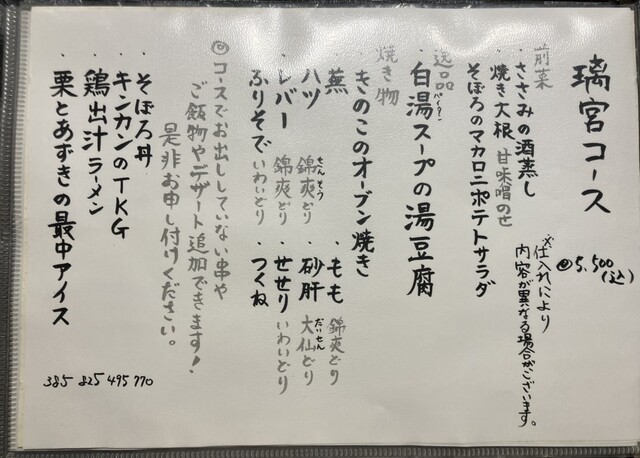 璃宮コース
◎5,500(込)
※仕入れにより
内容が異なる場合がございます。
前菜
・ささみの酒蒸し
・焼き大根 甘味噌のせ
そぼろのマカロニポテトサラダ
逸品
・白湯スープの湯豆腐
(パイタン)
焼き物
・きのこのオーブン焼き
・蕪
・もも 錦爽どり
・ハツ 錦爽どり
きんそう
・砂肝 大仙どり
だいせん
・レバー 錦爽どり
・せせり いわいどり
・ふりそで いわいどり
・つくね
◎コースでお出ししていない串や
ご飯物やデザート追加できます!
是非お申し付けください。
・そぼろ丼 770
・キンカンのTKG 495
・鶏出汁ラーメン 825
・栗とあずきの最中アイス 385